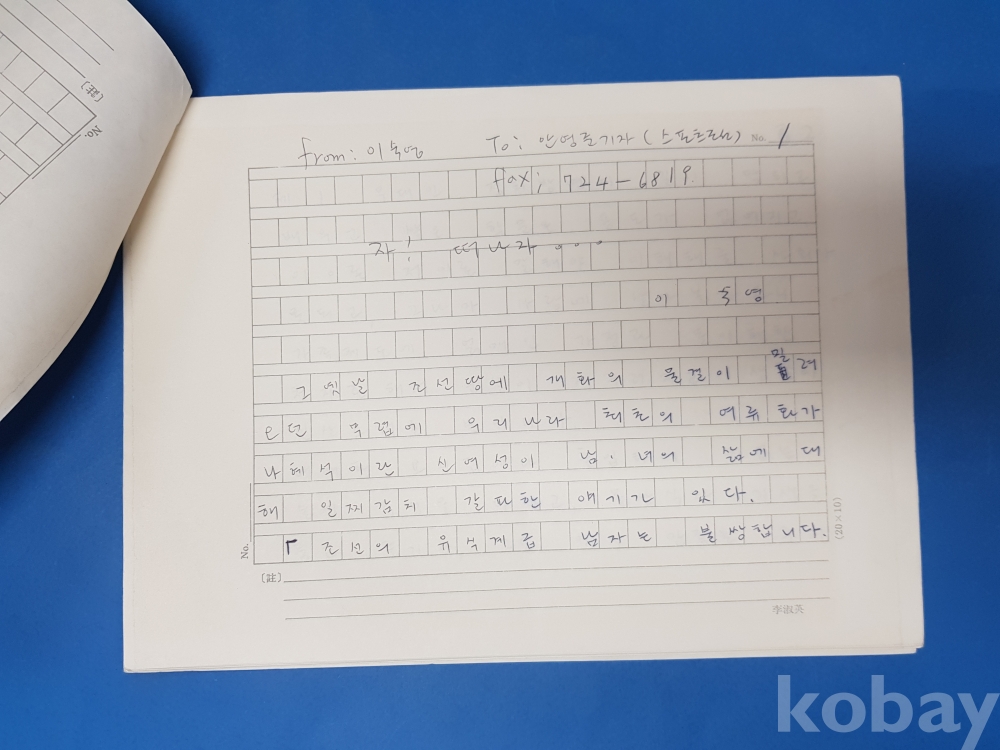 from: 이숙영 To: 안영 기자 (스포츠조선) No. 1
fax; 724-6819
자! 떠나자...
이 숙영
그 옛날 조선땅에 개화의 물결이 밀려
오던 무렵에 우리나라 최초의 여류 화가
나혜석이란 신여성이 남·녀의 삶에 대
해 일찌감치 갈파한 얘기가 있다.
「조선의 유식계급 남자는 불쌍합니다.
No.
(20×10)
[註]
李淑英
[註]
No.
kobay